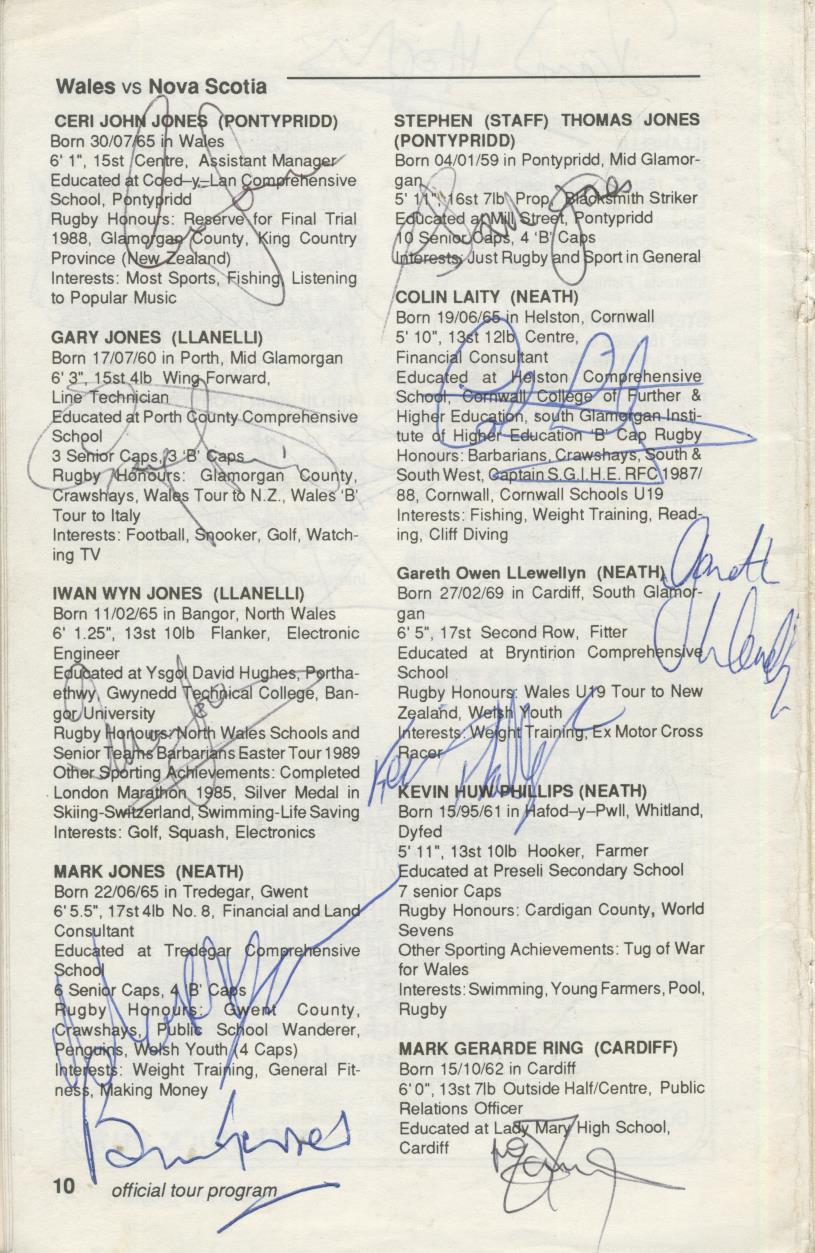 Wales vs Nova Scotia
CERI JOHN JONES (PONTYPRIDD)
Born 30/07/65 in Wales
6' 1", 15st Centre, Assistant Manager
Educated at Coed–y–Lan Comprehensive
School, Pontypridd
Rugby Honours: Reserve for Final Trial
1988, Glamorgan County, King Country
Province (New Zealand)
Interests: Most Sports, Fishing, Listening
to Popular Music
GARY JONES (LLANELLI)
Born 17/07/60 in Porth, Mid Glamorgan
6' 3", 15st 4lb Wing Forward,
Line Technician
Educated at Porth County Comprehensive
School
3 Senior Caps, 3 'B' Caps
Rugby Honours: Glamorgan County,
Crawshays, Wales Tour to N.Z., Wales 'B'
Tour to Italy
Interests: Football, Snooker, Golf, Watch-
ing TV
IWAN WYN JONES (LLANELLI)
Born 11/02/65 in Bangor, North Wales
6' 1.25", 13st 10lb Flanker, Electronic
Engineer
Educated at Ysgol David Hughes, Portha-
ethwy, Gwynedd Technical College, Ban-
gor University
Rugby Honours: North Wales Schools and
Senior Teams Barbarians Easter Tour 1989
Other Sporting Achievements: Completed
London Marathon 1985, Silver Medal in
Skiing-Switzerland, Swimming-Life Saving
Interests: Golf, Squash, Electronics
MARK JONES (NEATH)
Born 22/06/65 in Tredegar, Gwent
6' 5.5", 17st 4lb No. 8, Financial and Land
Consultant
Educated at Tredegar Comprehensive
School
6 Senior Caps, 4 'B' Caps
Rugby Honours: Gwent County,
Crawshays, Public School Wanderer,
Penguins, Welsh Youth (4 Caps)
Interests: Weight Training, General Fit-
ness, Making Money
STEPHEN (STAFF) THOMAS JONES
(PONTYPRIDD)
Born 04/01/59 in Pontypridd, Mid Glamor-
gan
5' 11", 16st 7lb Prop, Blacksmith Striker
Educated at Mill Street, Pontypridd
10 Senior Caps, 4 'B' Caps
Interests: Just Rugby and Sport in General
COLIN LAITY (NEATH)
Born 19/06/65 in Helston, Cornwall
5' 10", 13st 12lb Centre,
Financial Consultant
Educated at Helston Comprehensive
School, Cornwall College of Further &
Higher Education, south Glamorgan Insti-
tute of Higher Education 'B' Cap Rugby
Honours: Barbarians, Crawshays, South &
South West, Captain S.G.I.H.E. RFC 1987/
88, Cornwall, Cornwall Schools U19
Interests: Fishing, Weight Training, Read-
ing, Cliff Diving
Gareth Owen LLewellyn (NEATH)
Born 27/02/69 in Cardiff, South Glamor-
gan
6' 5", 17st Second Row, Fitter
Educated at Bryntirion Comprehensive
School
Rugby Honours: Wales U19 Tour to New
Zealand, Welsh Youth
Interests: Weight Training, Ex Motor Cross
Racer
KEVIN HUW PHILLIPS (NEATH)
Born 15/95/61 in Hafod–y–Pwll, Whitland,
Dyfed
5' 11", 13st 10lb Hooker, Farmer
Educated at Preseli Secondary School
7 senior Caps
Rugby Honours: Cardigan County, World
Sevens
Other Sporting Achievements: Tug of War
for Wales
Interests: Swimming, Young Farmers, Pool,
Rugby
MARK GERARDE RING (CARDIFF)
Born 15/10/62 in Cardiff
6' 0", 13st 7lb Outside Half/Centre, Public
Relations Officer
Educated at Lady Mary High School,
Cardiff
10 official tour program